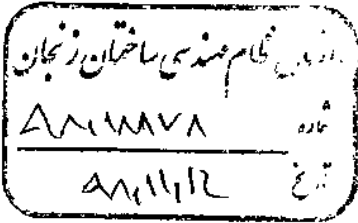 سازمان نظام مهندسی ساختمان زنجان
شماره
تاریخ ۹۸,۱۱,۱۲